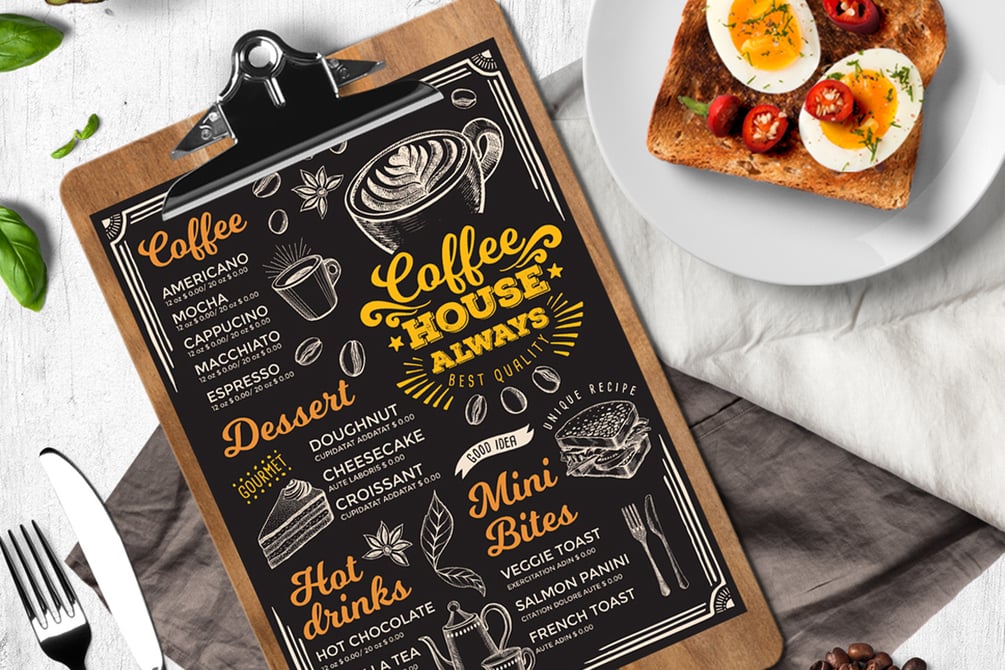 Coffee
AMERICANO
12 oz $ 0.00/ 20 oz $ 0.00
MOCHA
12 oz $ 0.00/ 20 oz $ 0.00
CAPPUCINO
12 oz $ 0.00/ 20 oz $ 0.00
MACCHIATO
12 oz $ 0.00/ 20 oz $ 0.00
ESPRESSO
12 oz $ 0.00/ 20 oz $ 0.00
Coffee
HOUSE
ALWAYS
BEST QUALITY
Dessert
GOURMET
DOUGHNUT
CUPIDATAT ADDATAT $ 0.00
CHEESECAKE
AUTE LABORIS $ 0.00
CROISSANT
CUPIDATAT ADDATAT $ 0.00
UNIQUE RECIPE
GOOD IDEA
Mini
Bites
VEGGIE TOAST
EXERCITATION ADIN $ 0.00
SALMON PANINI
CITATION DOLORE AUTE $ 0.00
FRENCH TOAST
AUTE ADIN $ 0.00
Hot
drinks
HOT CHOCOLATE
12 oz $ 0.00/ 20 oz $ 0.00
TEA